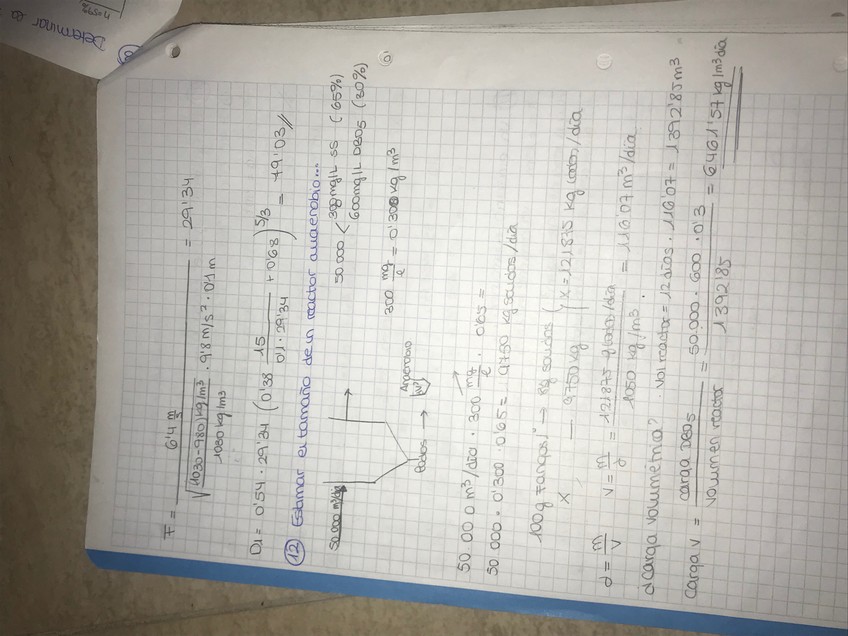 Determinar la
F = 6'4 m/s / √((1030-980) kg/m³ / 1080 kg/m³ · 9'8 m/s² · 0'1 m) = 29'34
D1 = 0'54 · 29'34 (0'38 15 / 0'1 · 29'34 + 0'68)^5/3 = 49'03 //
12 Estimar el tamaño de un reactor anaerobio...
50.000 m³/día
50.000 < 300 mg/L SS (65%)
600 mg/L DBO5 (30%)
300 mg/ℓ = 0'300 kg/m³
Anaerobio
W
Lodos →
50.000 m³/día · 300 mg/ℓ · 0'65 =
50.000 · 0'300 · 0'65 = 9750 kg sólidos/día
100 g "fangos" → 8g sólidos
X — 9750 kg
X = 121875 kg lodos/día
d = m/V V = m/d = 121875 g lodos/día / 1050 kg/m³ = 116'07 m³/día
d Carga volumétrica? Vol reactor = 12 días · 116'07 = 1392'85 m³
Carga V = carga DBO5 / volumen reactor = 50.000 · 600 · 0'3 / 1392'85 = 6.461'57 kg/m³ día